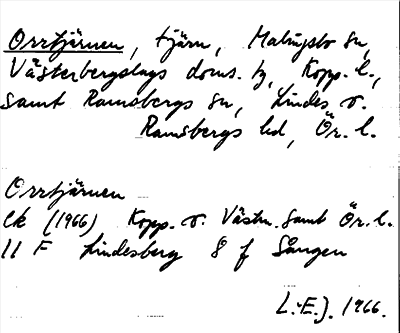 Orrtjärnen, tjärn, Malingsbo sn,
Västerbergslags doms. tg, Kopp. l.,
samt Ramsbergs sn, Lindes o.
Ramsbergs hd, Ör. l.
Orrtjärnen
Ek (1966) Kopp. o. Västm. samt Ör. l.
11 F Lindesberg 8 f Sången
L.E.J. 1966.